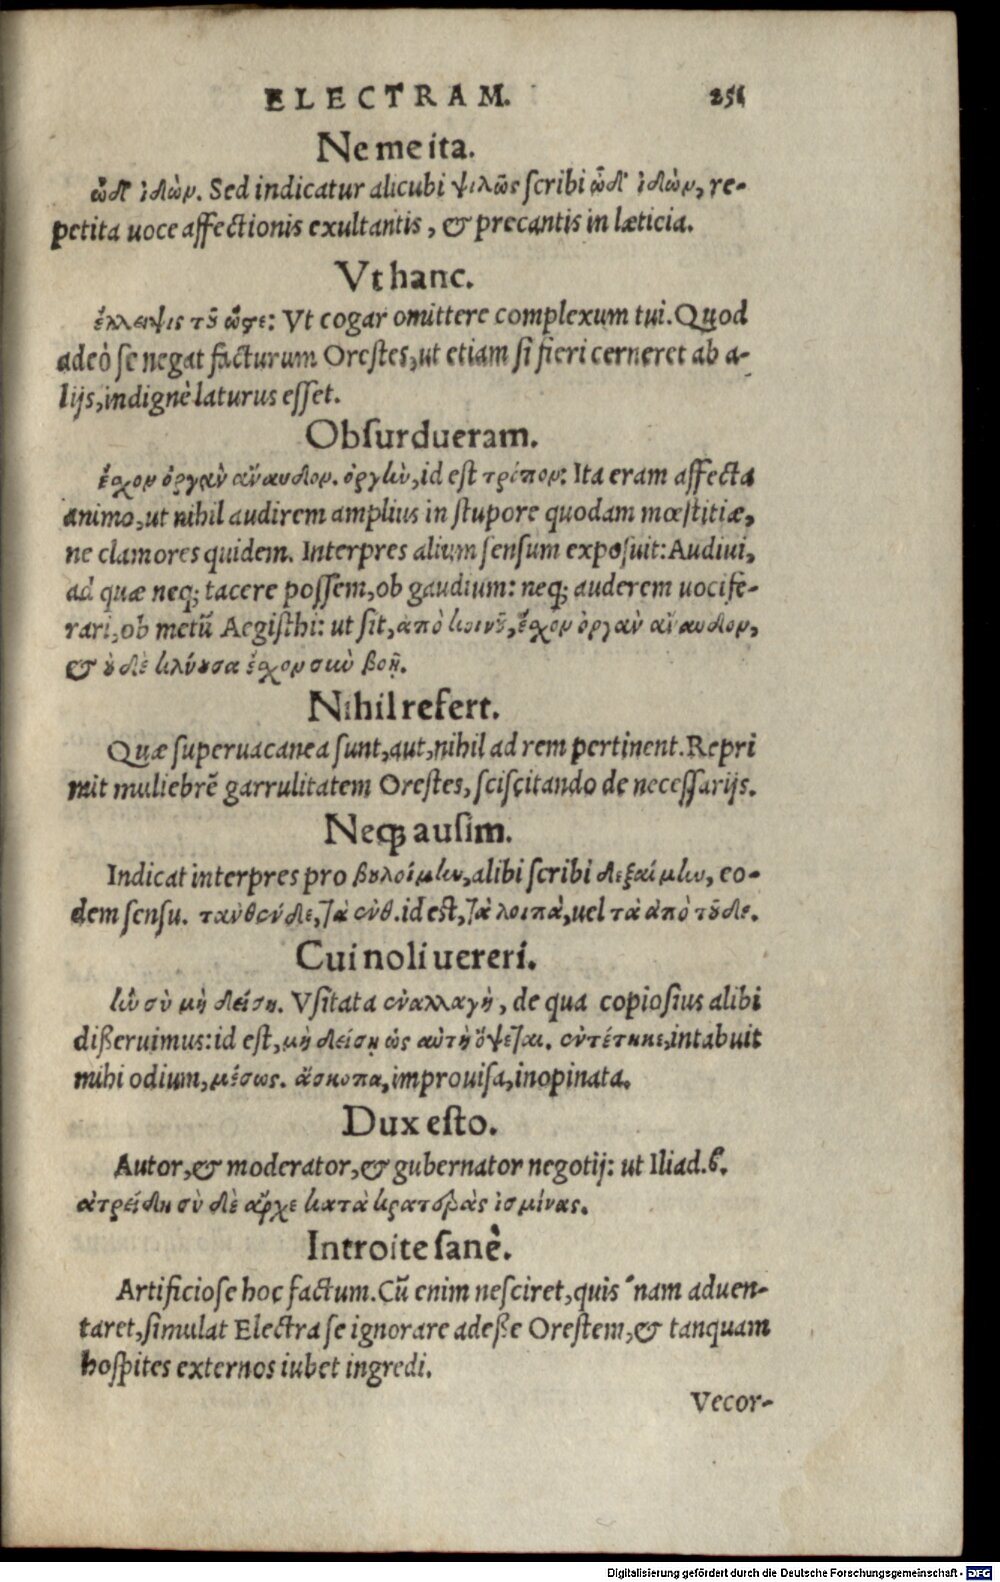 ELECTRAM. 251
Ne me ita.
ὧδ' ἰδὼν. Sed indicatur alicubi ψιλῶς scribi ὦδ' ἰδὼν, re-
petita uoce affectionis exultantis, & precantis in læticia.
Vt hanc.
ἔλλειψις τοῦ ὥστε: Vt cogar omittere complexum tui. Quod
adeò se negat facturum Orestes, ut etiam si fieri cerneret ab a-
lijs, indignè laturus esset.
Obsurdueram.
ἔσχον ὀργὰν ἄναυδον. ὀργὴν, id est τρόπον: Ita eram affecta
animo, ut nihil audirem amplius in stupore quodam mœstitiæ,
ne clamores quidem. Interpres alium sensum exposuit: Audiui,
ad quæ neq; tacere possem, ob gaudium: neq; auderem uocife-
rari, ob metū Aegisthi: ut sit, ἀπὸ κοινοῦ, ἔσχον ὀργὰν ἄναυδον,
& οὐδὲ κλύουσα ἔσχον σὺν βοῇ.
Nihil refert.
Quæ superuacanea sunt, aut, nihil ad rem pertinent. Repri
mit muliebrē garrulitatem Orestes, sciscitando de necessarijs.
Neq; ausim.
Indicat interpres pro βουλοίμην, alibi scribi δεξαίμην, eo-
dem sensu. τἀνθένδε, τὰ ἐνθ. id est, τὰ λοιπὰ, uel τὰ ἀπὸ τοῦδε.
Cui noli uereri.
ἣν σὺ μὴ δείσῃ. Vsitata ἐναλλαγὴ, de qua copiosius alibi
dißeruimus: id est, μὴ δείσῃ ὡς αὐτὴ ὄψεται. ἐντέτηκε, intabuit
mihi odium, μέσως. ἄσκοπα, improuisa, inopinata.
Dux esto.
Autor, & moderator, & gubernator negotij: ut Iliad. β.
ἀτρείδη σὺ δὲ ἄρχε κατὰ κρατερὰς ὑσμίνας.
Introite sanè.
Artificiose hoc factum. Cū enim nesciret, quis nam aduen-
taret, simulat Electra se ignorare adeße Orestem, & tanquam
hospites externos iubet ingredi.
Vecor-
Digitalisierung gefördert durch die Deutsche Forschungsgemeinschaft - DFG